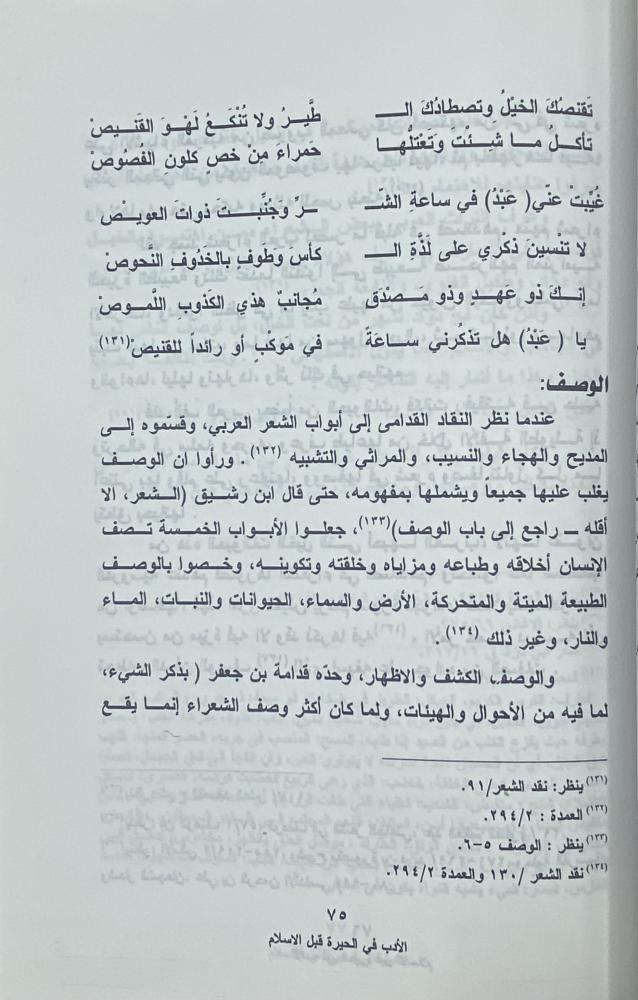 تَقنصُكَ الخيْلُ وتصطادُكَ الـ طَّيرُ ولا تُنْكَعُ لَهْوَ القَنيصْ
تأكلُ ما شئْتَ وتَعْتَلُّها حَمراءَ مِنْ خصٍ كلونِ الفُصُوصْ
غُيِّبتْ عنّي( عَبْدُ) في ساعةِ الشّـ ـرِّ وجُنِّبتَ ذواتَ العويصْ
لا تنْسينَ ذكْري على لَذَّةِ الـ كأسَ وطَوفٍ بالخَذُوفِ النَّحوصْ
إنكَ ذو عَهدٍ وذو مَصْدَقٍ مُجانبٌ هذي الكَذوبِ اللَّموصْ
يا ( عَبْدُ) هل تذكُرني ساعَةً في مَوكبٍ أو رائداً للقنيصْ(١٣١)
الوصف:
عندما نظر النقاد القدامى إلى أبواب الشعر العربي، وقسّموه إلى
المديح والهجاء والنسيب، والمراثي والتشبيه (١٣٢) . ورأوا ان الوصف
يغلب عليها جميعاً ويشملها بمفهومه، حتى قال ابن رشيق (الشعر، الا
أقله – راجع إلى باب الوصف)(١٣٣)، جعلوا الأبواب الخمسة تصف
الإنسان أخلاقه وطباعه ومزاياه وخلقته وتكوينه، وخصوا بالوصف
الطبيعة الميتة والمتحركة، الأرض والسماء، الحيوانات والنبات، الماء
والنار، وغير ذلك (١٣٤) .
والوصف الكشف والاظهار، وحدّه قدامة بن جعفر ( بذكر الشيء،
لما فيه من الأحوال والهيئات، ولما كان أكثر وصف الشعراء إنما يقع
(١٣١) ينظر: نقد الشعر/٩١.
(١٣٢) العمدة : ٢٩٤/٢.
(١٣٣) ينظر : الوصف ٥-٦.
(١٣٤) نقد الشعر /١٣٠ والعمدة ٢٩٤/٢.
٧٥
الأدب في الحيرة قبل الاسلام